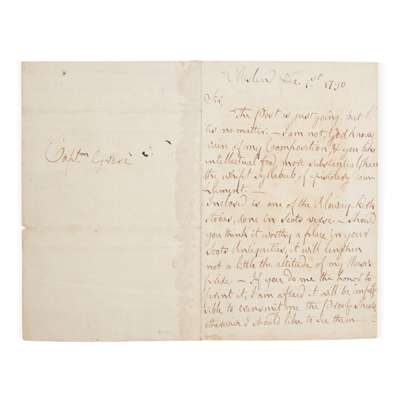 Captn Grose
Ellisland Dec. 1st 1790
Sir,
The Post is just going, but
is no matter. — I am not, God knows,
vain of my Composition, & you like
intellectual food more substantial than
the whipt Syllabub of epistolary com-
pliment. —
Inclosed is one of the Aloway-kirk
Stories, done in Scots verse. — Should
you think it worthy a place in your
Scots Antiquities, it will lengthen
not a little the altitude of my Muse's
pride. — If you do me the honor to
print it, I am afraid it will be impos-
sible to transmit me the Proof-Sheets
otherwise I should like to see them —